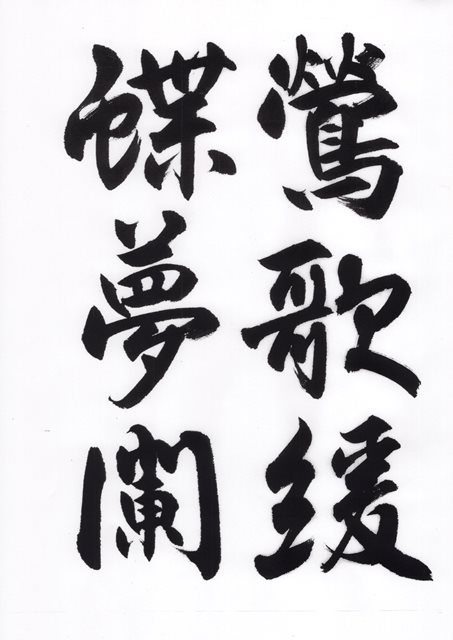 鶯歌緩
蝶夢闌